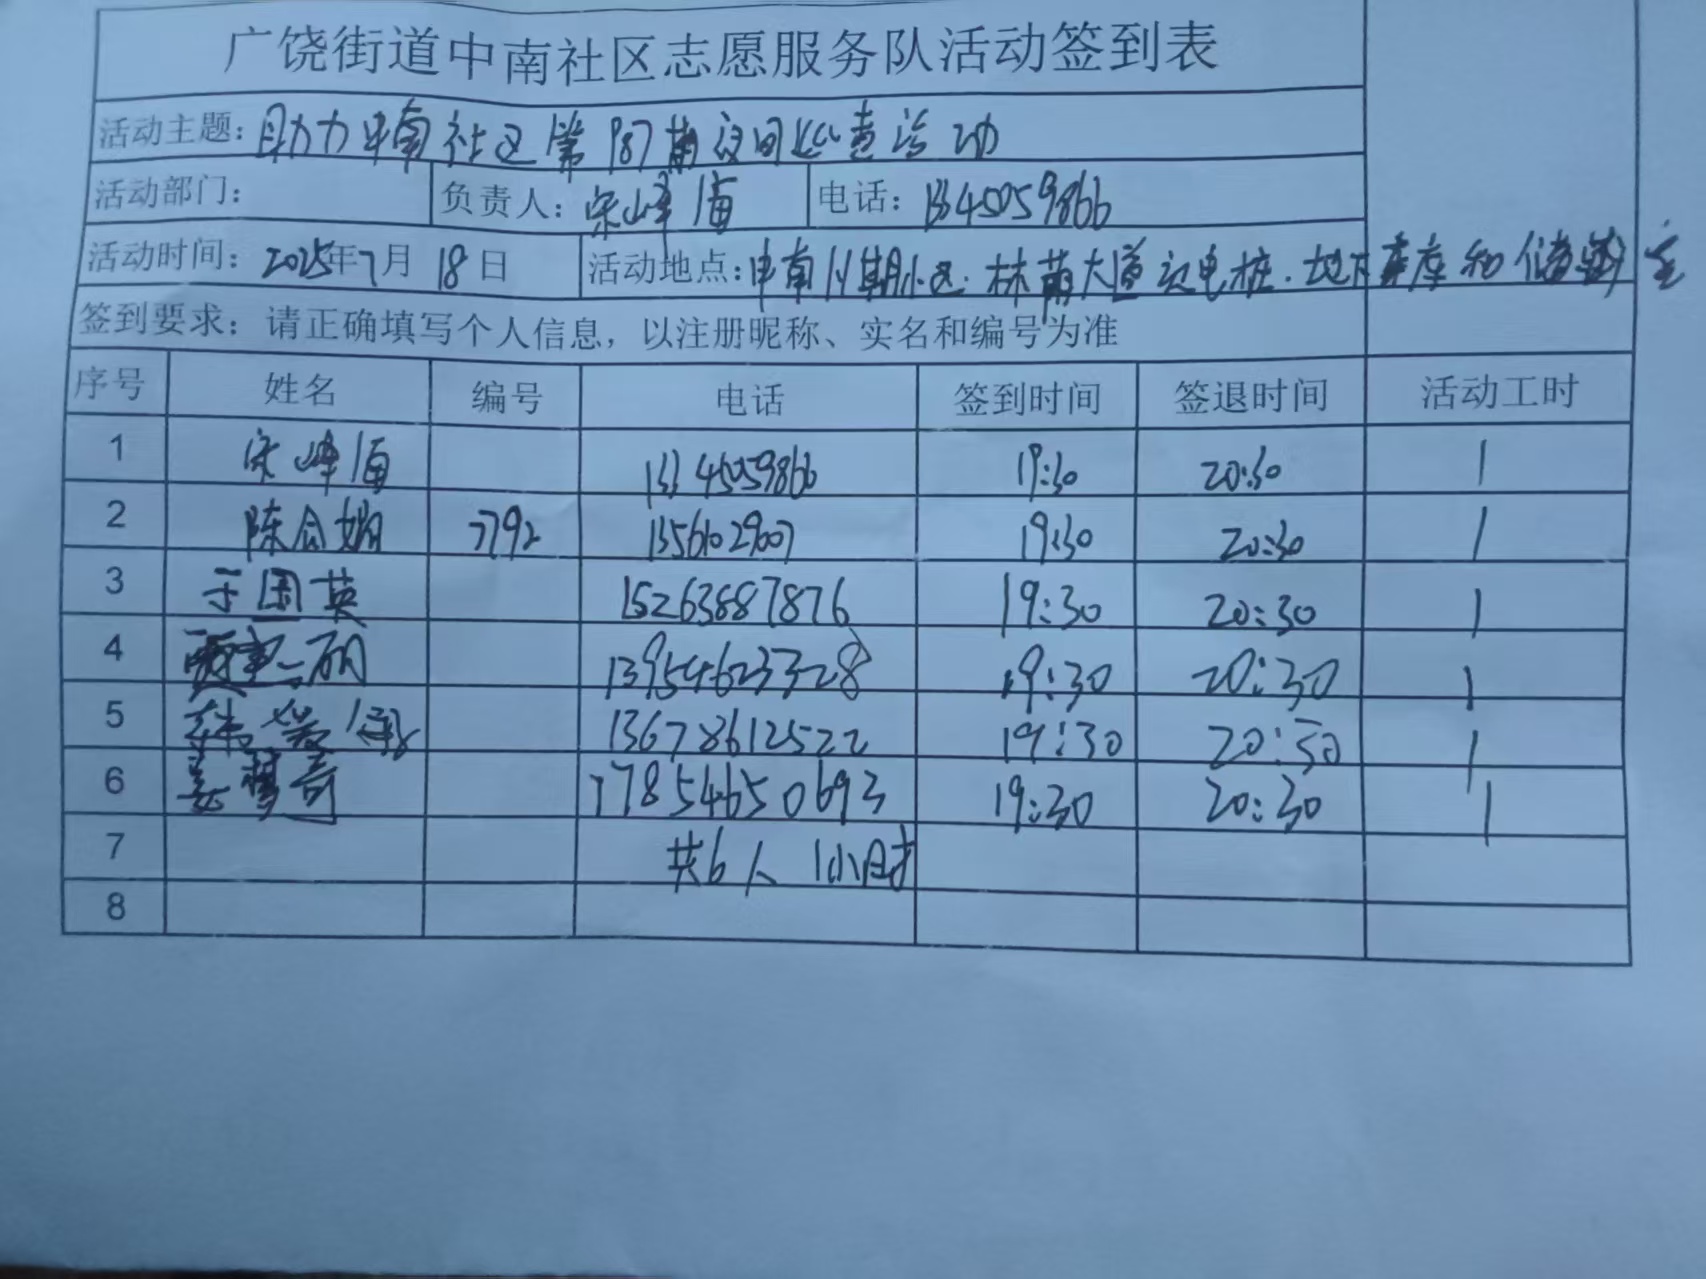 广饶街道中南社区志愿服务队活动签到表
活动主题：助力中南社区第187期夜间巡查活动
活动部门： 负责人：宋峰海 电话：13345059866
活动时间：2025年7月18日 活动地点：中南 期小区.林荫大道充电桩.地下车库和储藏室
签到要求：请正确填写个人信息，以注册昵称、实名和编号为准
序号 姓名 编号 电话 签到时间 签退时间 活动工时
1 宋峰海 13345059866 19:30 20:30 1
2 陈 娟 7792 13561029007 19:30 20:30 1
3 于国英 15263887876 19:30 20:30 1
4 13954623328 19:30 20:30 1
5 韩爱 13678612522 19:30 20:30 1
6 姜梦奇 17854650693 19:30 20:30 1
7 共6人 1小时
8